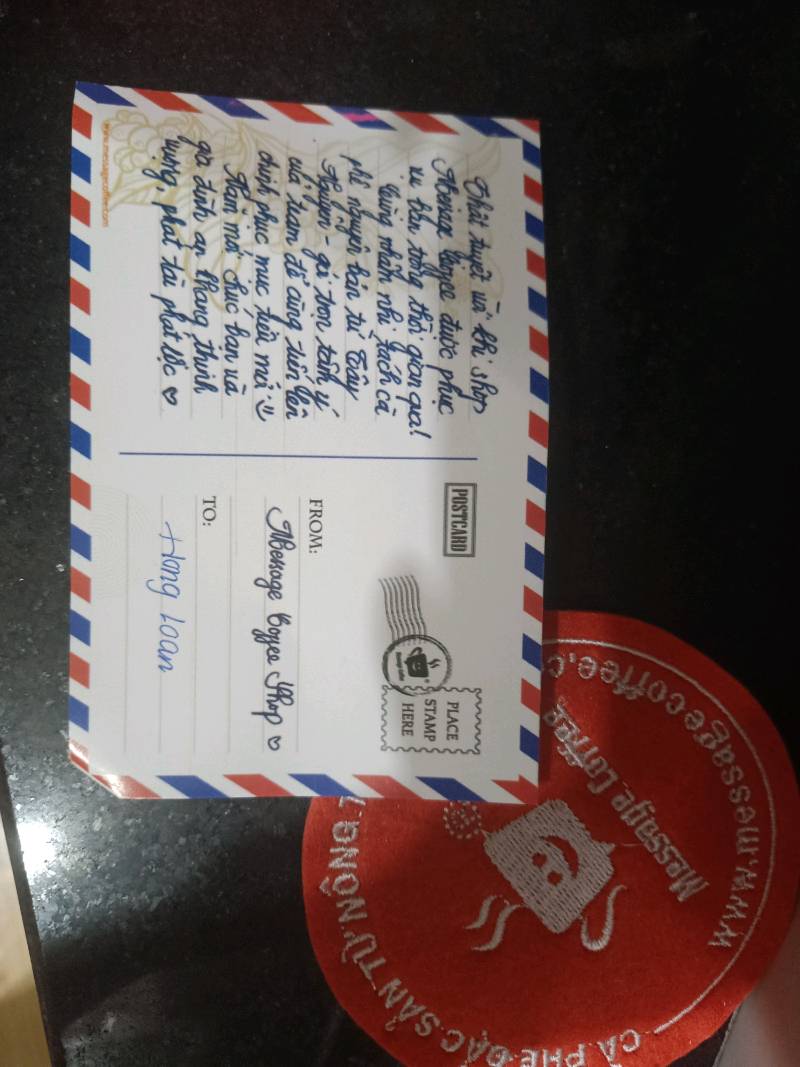 Thật tuyệt vời khi shop
Message Coffee được phục
vụ bạn trong thời gian qua!
Cùng nhâm nhi tách cà
phê nguyên bản từ Tây
Nguyên - gói trọn tình ý
của team để cùng tiến lên
chinh phục mục tiêu mới :)
Năm mới chúc bạn và
gia đình an khang thịnh
vượng, phát tài phát lộc ♡
www.messagecoffee.com
POSTCARD
PLACE
STAMP
HERE
FROM:
Message Coffee Shop ♡
TO:
Hong Loan
www.messagecoffee.c
Message Coffee
CÀ PHÊ ĐẶC SẢN TỪ NÔNG